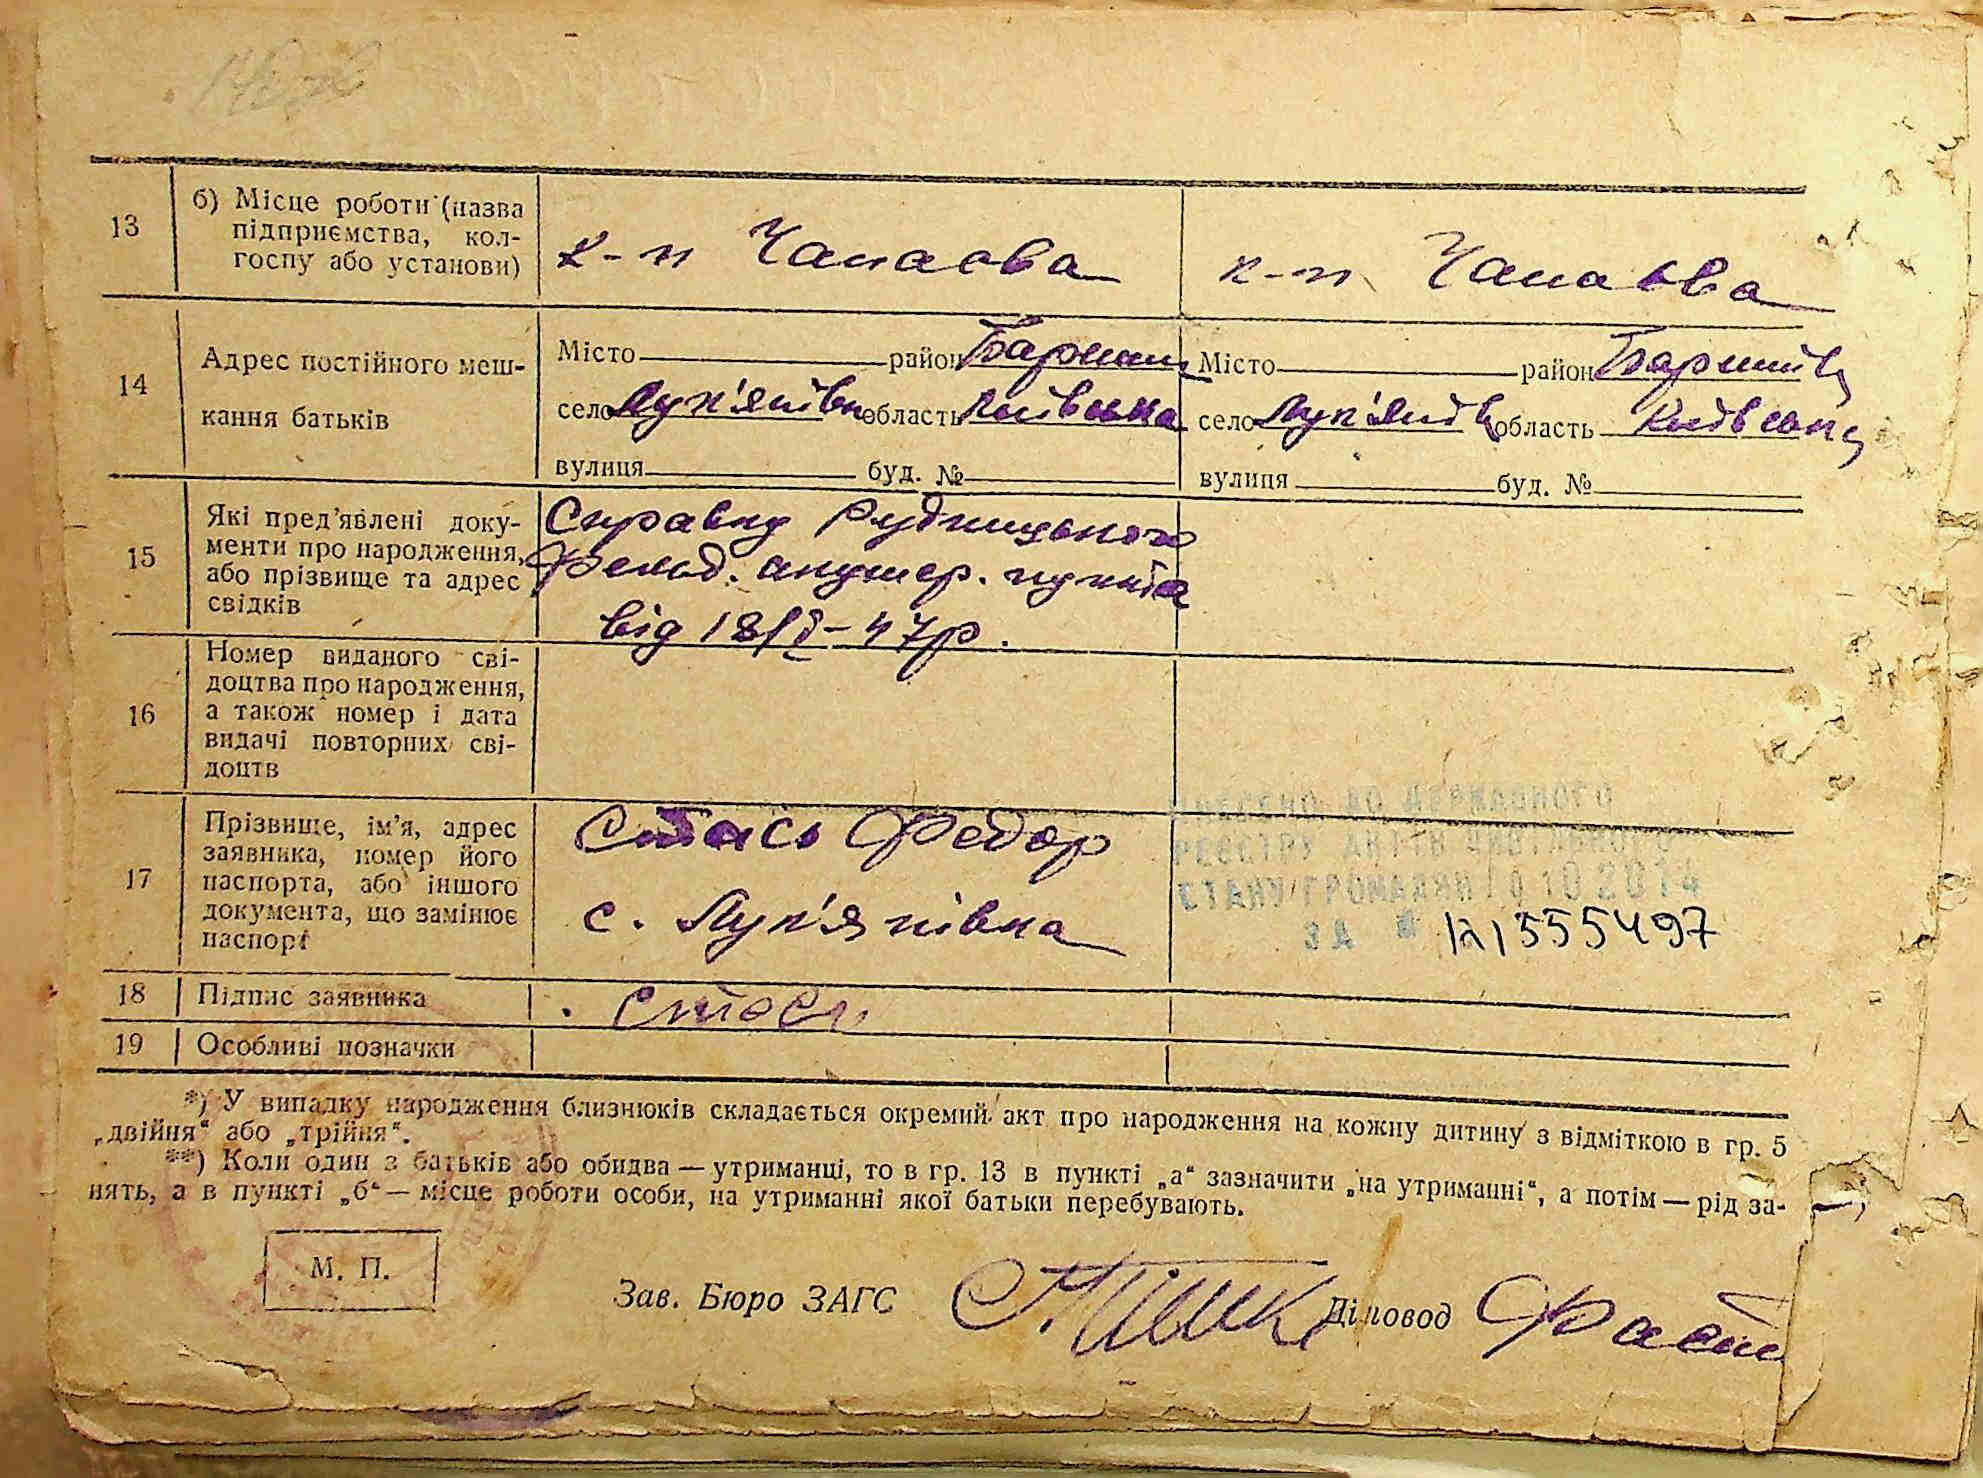 13
б) Місце роботи (назва
підприємства, кол-
госпу або установи)
к-п Чапаєва
к-п Чапаєва
14
Адрес постійного меш-
кання батьків
Місто район Баришів
село Лук'янівка область Київська
вулиця буд. №
Місто район Баришів
село Лук'янівка область Київська
вулиця буд. №
15
Які пред'явлені доку-
менти про народження,
або прізвище та адрес
свідків
Справку Рудницького
Фельд. акушер. пункта
від 18/I-47р.
16
Номер виданого сві-
доцтва про народження,
а також номер і дата
видачі повторних сві-
доцтв
17
Прізвище, ім'я, адрес
заявника, номер його
паспорта, або іншого
документа, що замінює
паспорт
Стась Федор
с. Лук'янівка
ВНЕСЕНО ДО ДЕРЖАВНОГО
РЕЄСТРУ АКТІВ ЦИВІЛЬНОГО
СТАНУ ГРОМАДЯН 10 2014
ЗА №
18
Підпис заявника
Стась
19
Особливі позначки
*) У випадку народження близнюків складається окремий акт про народження на кожну дитину з відміткою в гр. 5
„двійня“ або „трійня“.
**) Коли один з батьків або обидва — утриманці, то в гр. 13 в пункті „а“ зазначити „на утриманні“, а потім — рід за-
нять, а в пункті „б“ — місце роботи особи, на утриманні якої батьки перебувають.
М. П.
Зав. Бюро ЗАГС
Діловод